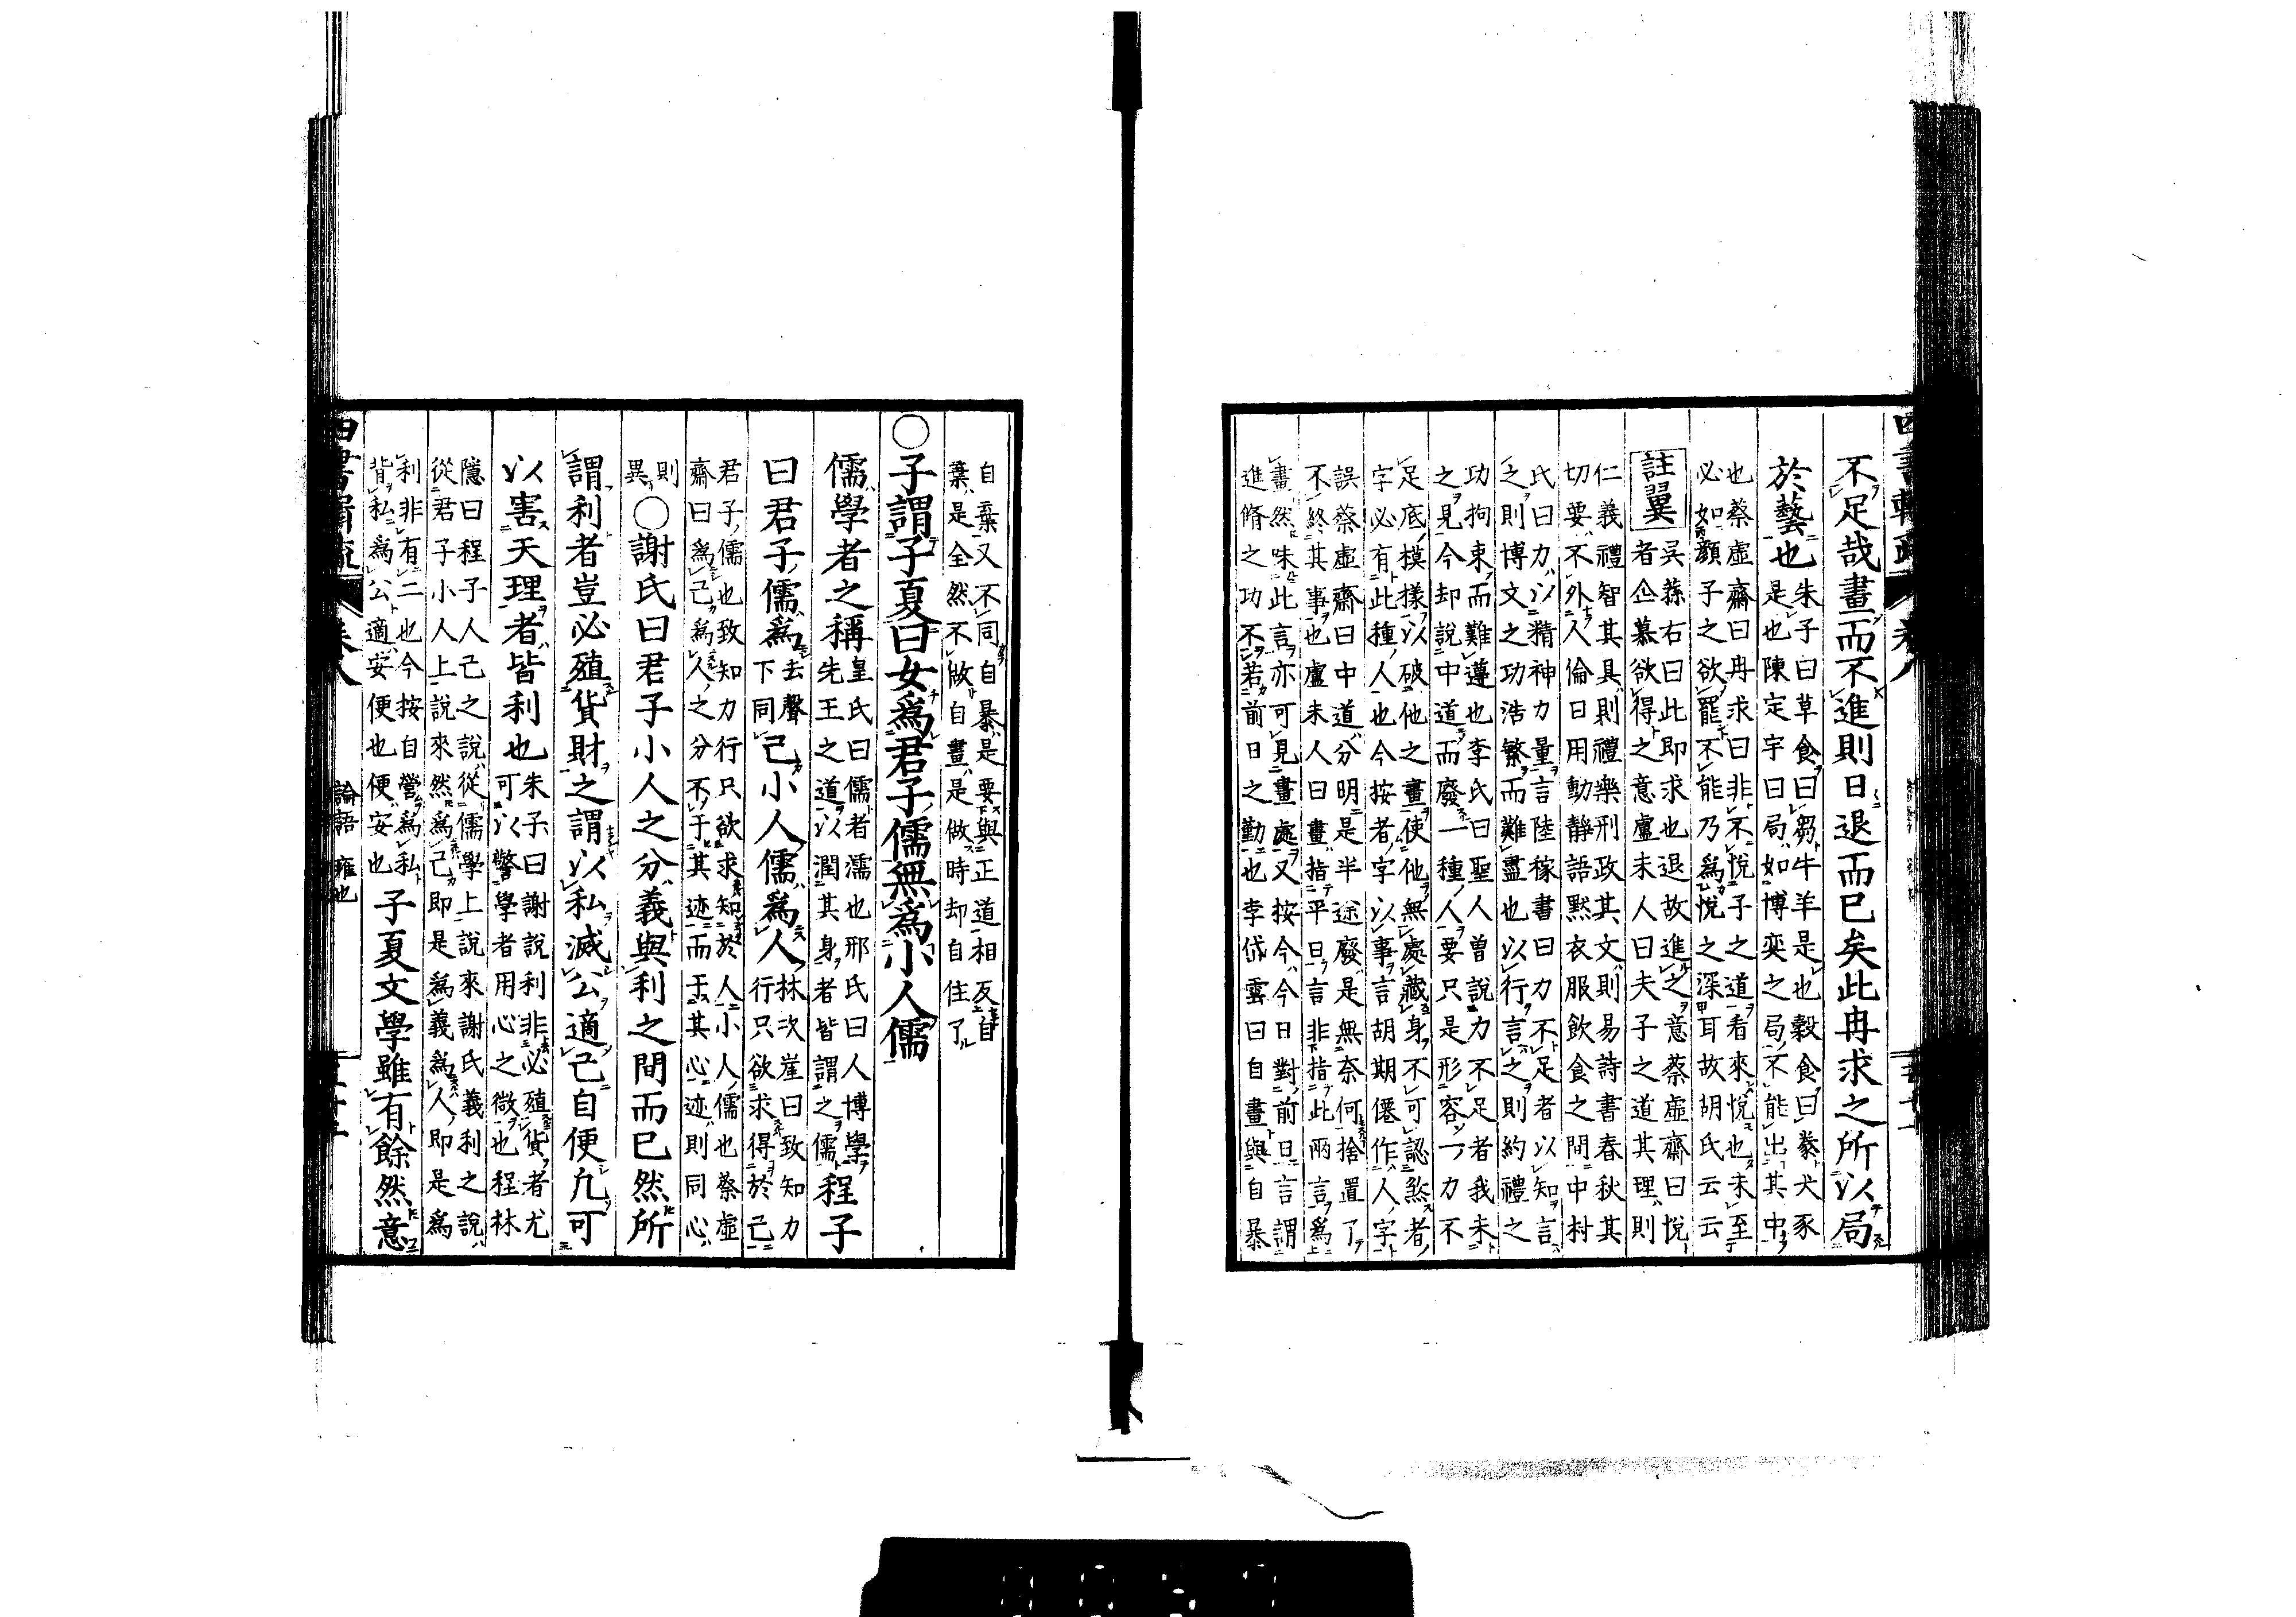 不足哉畫而不進則日退而已矣此冉求之所以局
於藝也
朱子曰草食曰芻牛羊是也穀食曰豢犬豕
是也陳定宇曰局如博奕之局不能出其中
也蔡虛齋曰冉求曰非不悅子之道看來悅也未至
必如顏子之欲罷不能乃爲悅之深耳故胡氏云云
註翼
吳蓀右曰此即求也退故進之意蔡虛齋曰悅
者企慕欲得之意盧未人曰夫子之道其理則
仁義禮智其具則禮樂刑政其文則易詩書春秋其
切要不外人倫日用動靜語默衣服飲食之間中村
氏曰力以精神力量言陸稼書曰力不足者以知言
之則博文之功浩繁而難盡也以行言之則約禮之
功拘束而難遵也李氏曰聖人曽說力不足者我未
之見今却說中道而廢一種人要只是形容一力不
足底模樣以破他之畫使他無處藏身不可認煞者
字必有此種人也今按者字以事言胡期僊作人字
誤蔡虛齋曰中道分明是半途廢是無奈何捨置了
不終其事也盧未人曰畫指平日言非指此兩言爲
畫然味此言亦可見畫處又按今今日對前日言謂
進脩之功不若前日之勤也李岱雲曰自畫與自暴
自棄又不同自暴是要與正道相反自
棄是全然不做自畫是做時却自住了
○子謂子夏曰女爲君子儒無爲小人儒
儒學者之稱
皇氏曰儒者濡也邢氏曰人博學
先王之道以潤其身者皆謂之儒
程子
曰君子儒爲
去聲
下同
己小人儒爲人
林次崖曰致知力
行只欲求得於己
君子儒也致知力行只欲求知於人小人儒也蔡虛
齋曰爲己爲人之分不于其迹而于其心迹則同心
則
異
○謝氏曰君子小人之分義與利之間而已然所
謂利者豈必殖貨財之謂以私滅公適己自便凡可
以害天理者皆利也
朱子曰謝說利非必殖貨者尤
可以警學者用心之微也程林
隱曰程子人己之說從儒學上說來謝氏義利之說
從君子小人上說來然爲己即是爲義爲人即是爲
利非有二也今按自營爲私
背私爲公適安便也便安也
子夏文學雖有餘然意
卷八
論語 雍也